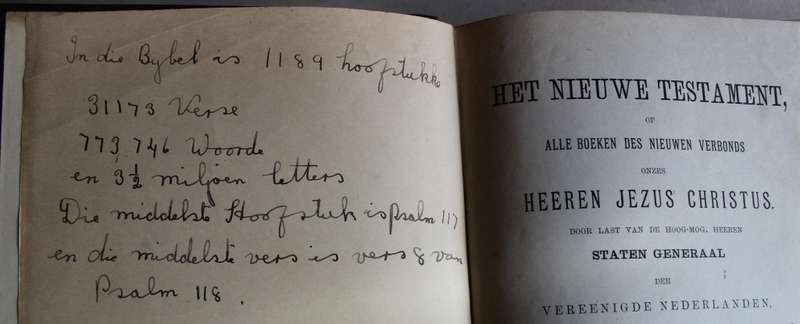 In die Bybel is 1189 hoofstukke
31173 Verse
773,746 Woorde
en 3½ miljoen letters
Die middelste Hoofstuk is psalm 117
en die middelste vers is vers 8 van
Psalm 118.
HET NIEUWE TESTAMENT,
OF
ALLE BOEKEN DES NIEUWEN VERBONDS
ONZES
HEEREN JEZUS CHRISTUS.
DOOR LAST VAN DE HOOG-MOG. HEEREN
STATEN GENERAAL
DER
VEREENIGDE NEDERLANDEN,